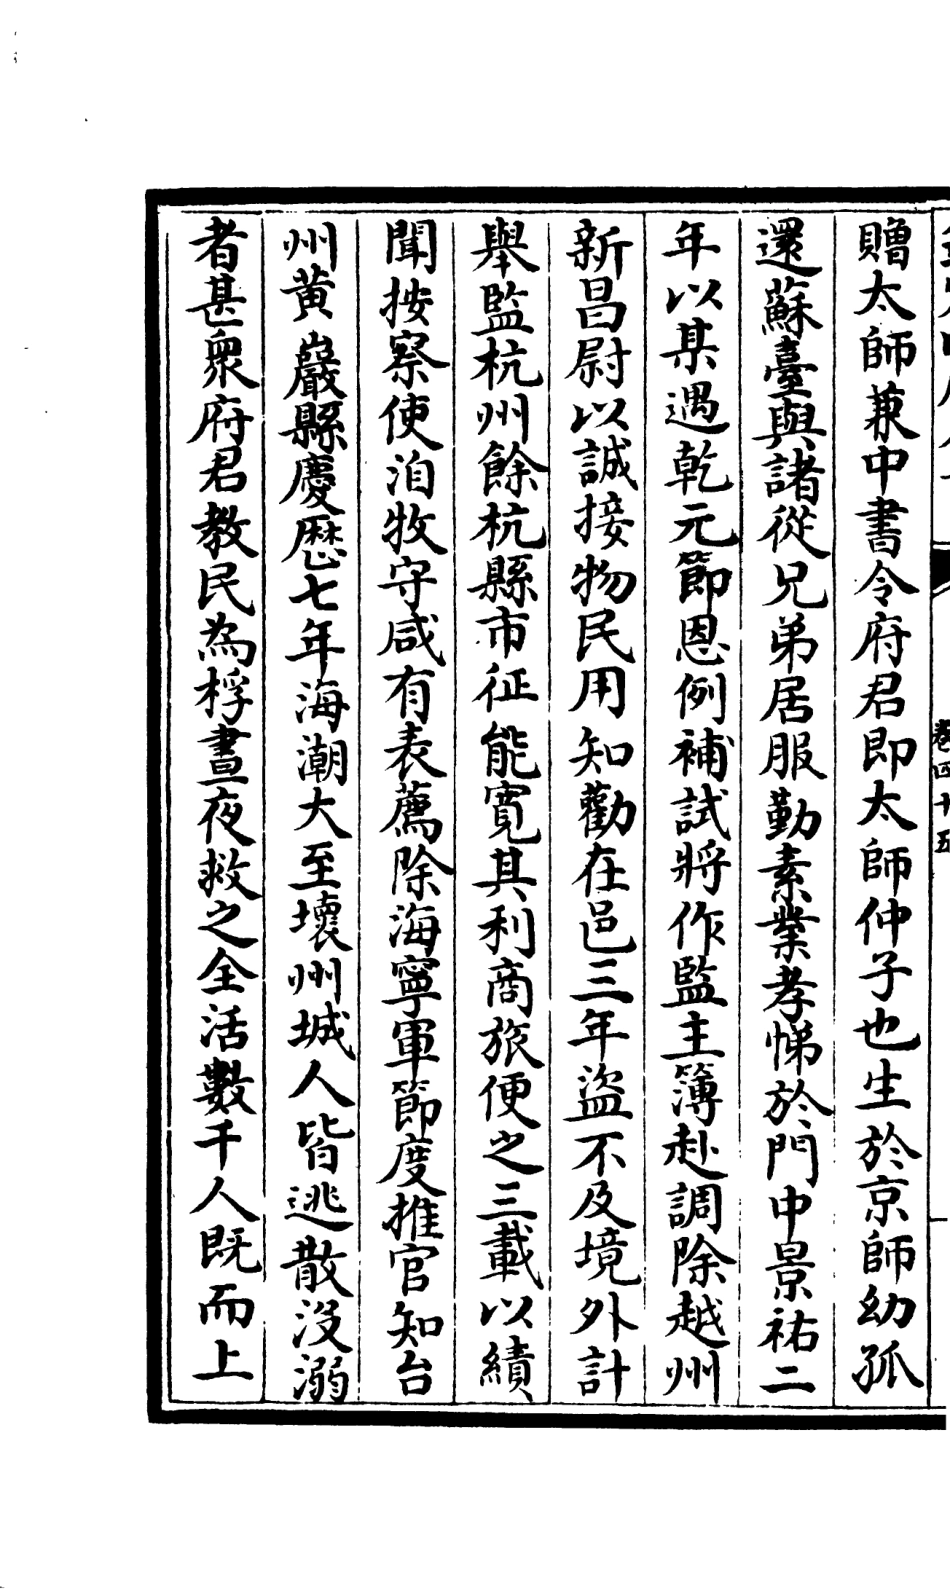 贈太師兼中書令府君即太師仲子也生於京師幼孤
還蘇臺與諸從兄弟居服勤素業孝悌於門中景祐二
年以某遇乾元節恩例補試將作監主簿赴調除越州
新昌尉以誠接物民用知勸在邑三年盜不及境外計
舉監杭州餘杭縣市征能寬其利商旅便之三載以績
聞按察使洎牧守咸有表薦除海寧軍節度推官知台
州黃巖縣慶厯七年海潮大至壞州城人皆逃散沒溺
者甚衆府君教民為桴晝夜救之全活數千人既而上
卷四十五